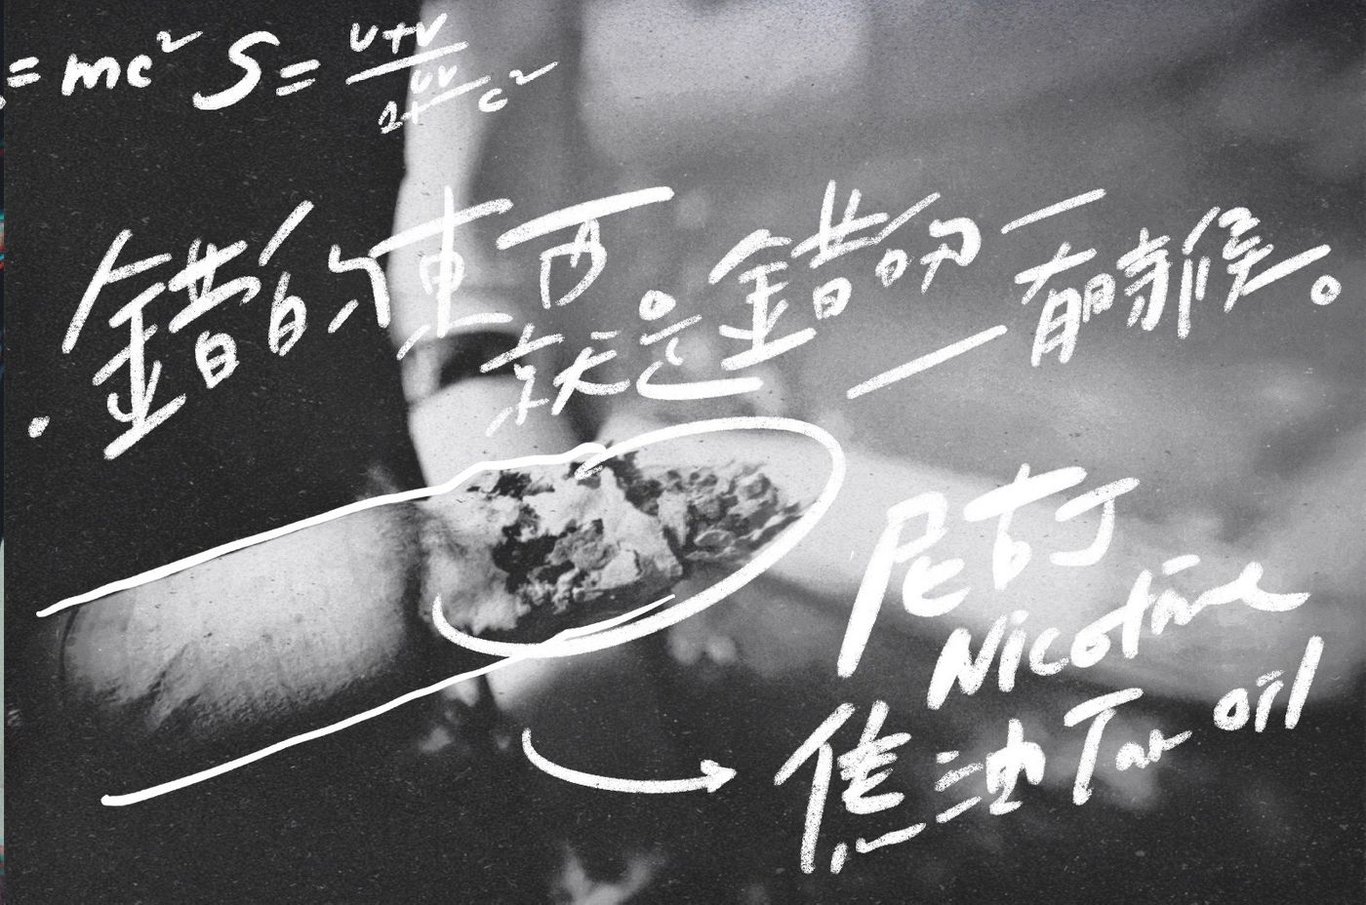 =mc² S= u+v / 2+ uv/c²
錯的東西
就是錯的 — 有時候。
尼古丁
Nicotine
焦油 Tar oil